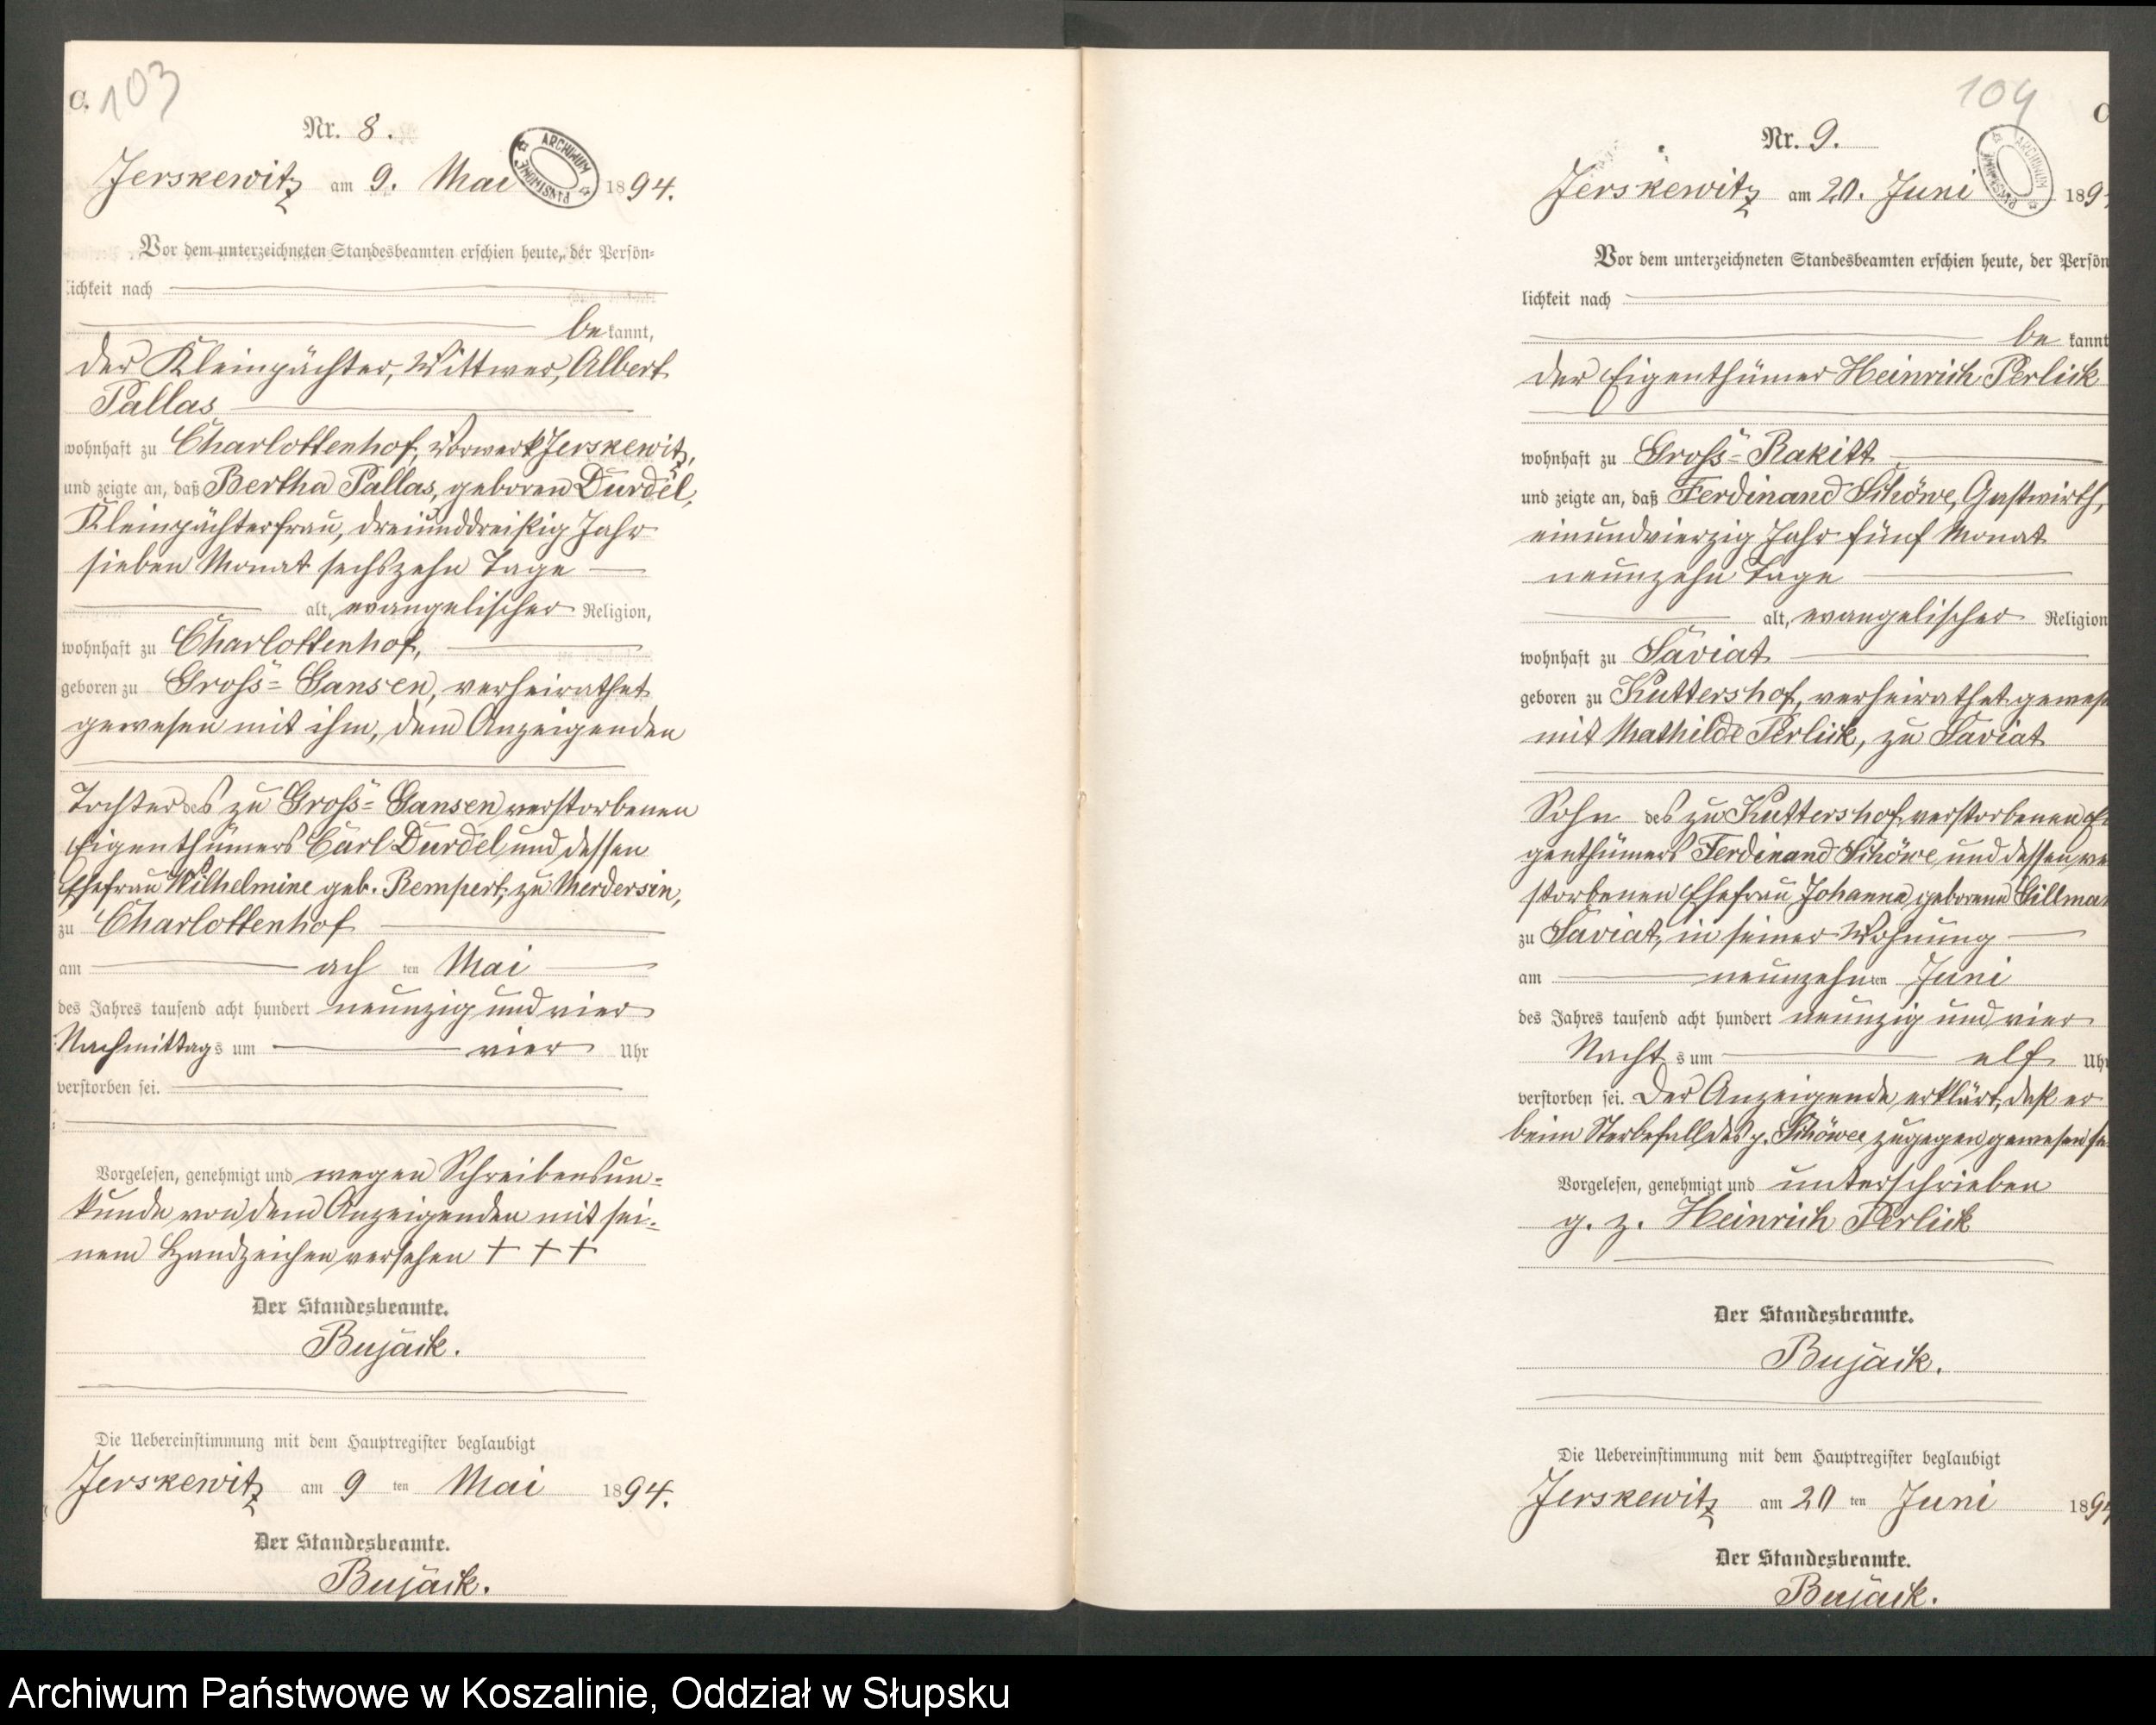 C. 103
Nr. 8.
ARCHIWUM PAŃSTWOWE
Jerskewitz am 9. Mai 1894.
Vor dem unterzeichneten Standesbeamten erschien heute, der Persön-
lichkeit nach
be kannt,
der Kleinpächter, Wittwer, Albert
Pallas
wohnhaft zu Charlottenhof, Vorwerk Jerskewitz,
und zeigte an, daß Bertha Pallas, geboren Durdel,
Kleinpächterfrau, dreiunddreißig Jahr
sieben Monat sechszehn Tage
alt, evangelischer Religion,
wohnhaft zu Charlottenhof,
geboren zu Groß-Gansen, verheirathet
gewesen mit ihm, dem Anzeigenden
Tochter des zu Groß-Gansen verstorbenen
Eigenthümers Carl Durdel und dessen
Ehefrau Wilhelmine geb. Rempert, zu Merdersin,
zu Charlottenhof
am ach ten Mai
des Jahres tausend acht hundert neunzig und vier
Nachmittags um vier Uhr
verstorben sei.
Vorgelesen, genehmigt und wegen Schreibensun-
kunde von dem Anzeigenden mit sei-
nem Handzeichen versehen + + +
Der Standesbeamte.
Bujack.
Die Uebereinstimmung mit dem Hauptregister beglaubigt
Jerskewitz am 9 ten Mai 1894.
Der Standesbeamte.
Bujack.
104 C
Nr. 9.
ARCHIWUM PAŃSTWOWE
Jerskewitz am 20. Juni 189
Vor dem unterzeichneten Standesbeamten erschien heute, der Persön
lichkeit nach
be kannt
der Eigenthümer Heinrich Perlick
wohnhaft zu Groß-Rakitt
und zeigte an, daß Ferdinand Schöwe, Gastwirth,
einundvierzig Jahr fünf Monat
neunzehn Tage
alt, evangelischer Religion
wohnhaft zu Saviat
geboren zu Kuttershof, verheirathet gewese
mit Mathilde Perlick, zu Saviat
Sohn des zu Kuttershof verstorbenen Ei
genthümers Ferdinand Schöwe und dessen ver
storbenen Ehefrau Johanna, geborene Sillma
zu Saviat, in seiner Wohnung
am neunzehnten Juni
des Jahres tausend acht hundert neunzig und vier
Nachts um elf Uhr
verstorben sei. Der Anzeigende erklärt, daß er
beim Sterbefall des p. Schöwe zugegen gewesen sei
Vorgelesen, genehmigt und unterschrieben
g. z. Heinrich Perlick
Der Standesbeamte.
Bujack.
Die Uebereinstimmung mit dem Hauptregister beglaubigt
Jerskewitz am 20 ten Juni 1894
Der Standesbeamte.
Bujack.
Archiwum Państwowe w Koszalinie, Oddział w Słupsku